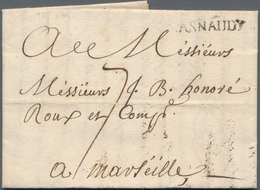 A Messieurs
Messieurs J. B. honoré
Roux et Comp.
a marseille